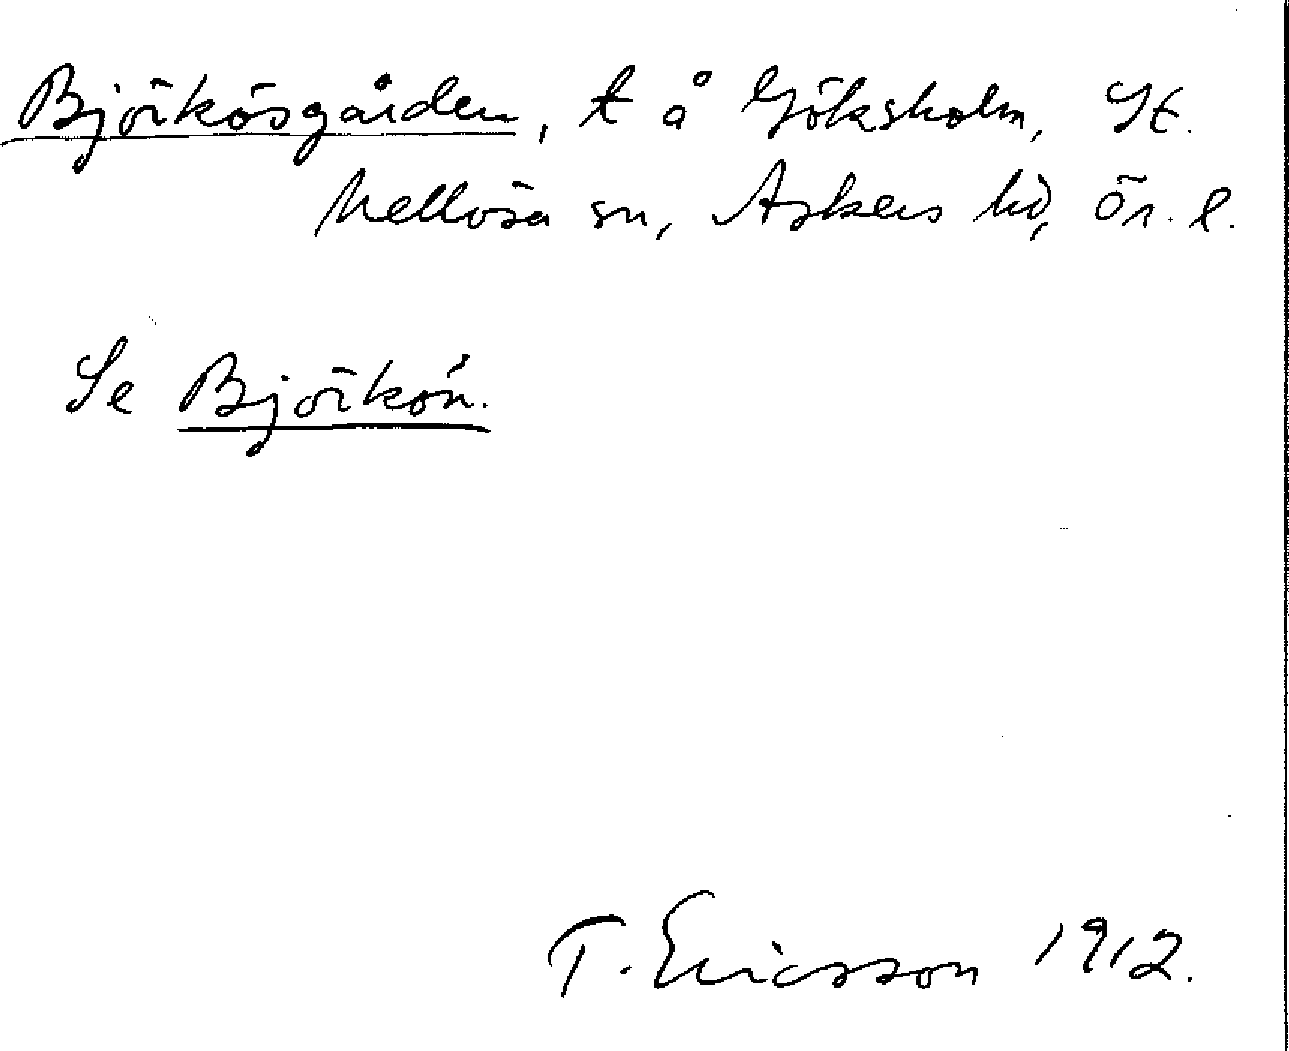 Björkösgården, t å Göksholm, St.
Mellösa sn, Askers hd, Ör. l.
Se Björkön.
T. Ericsson 1912.